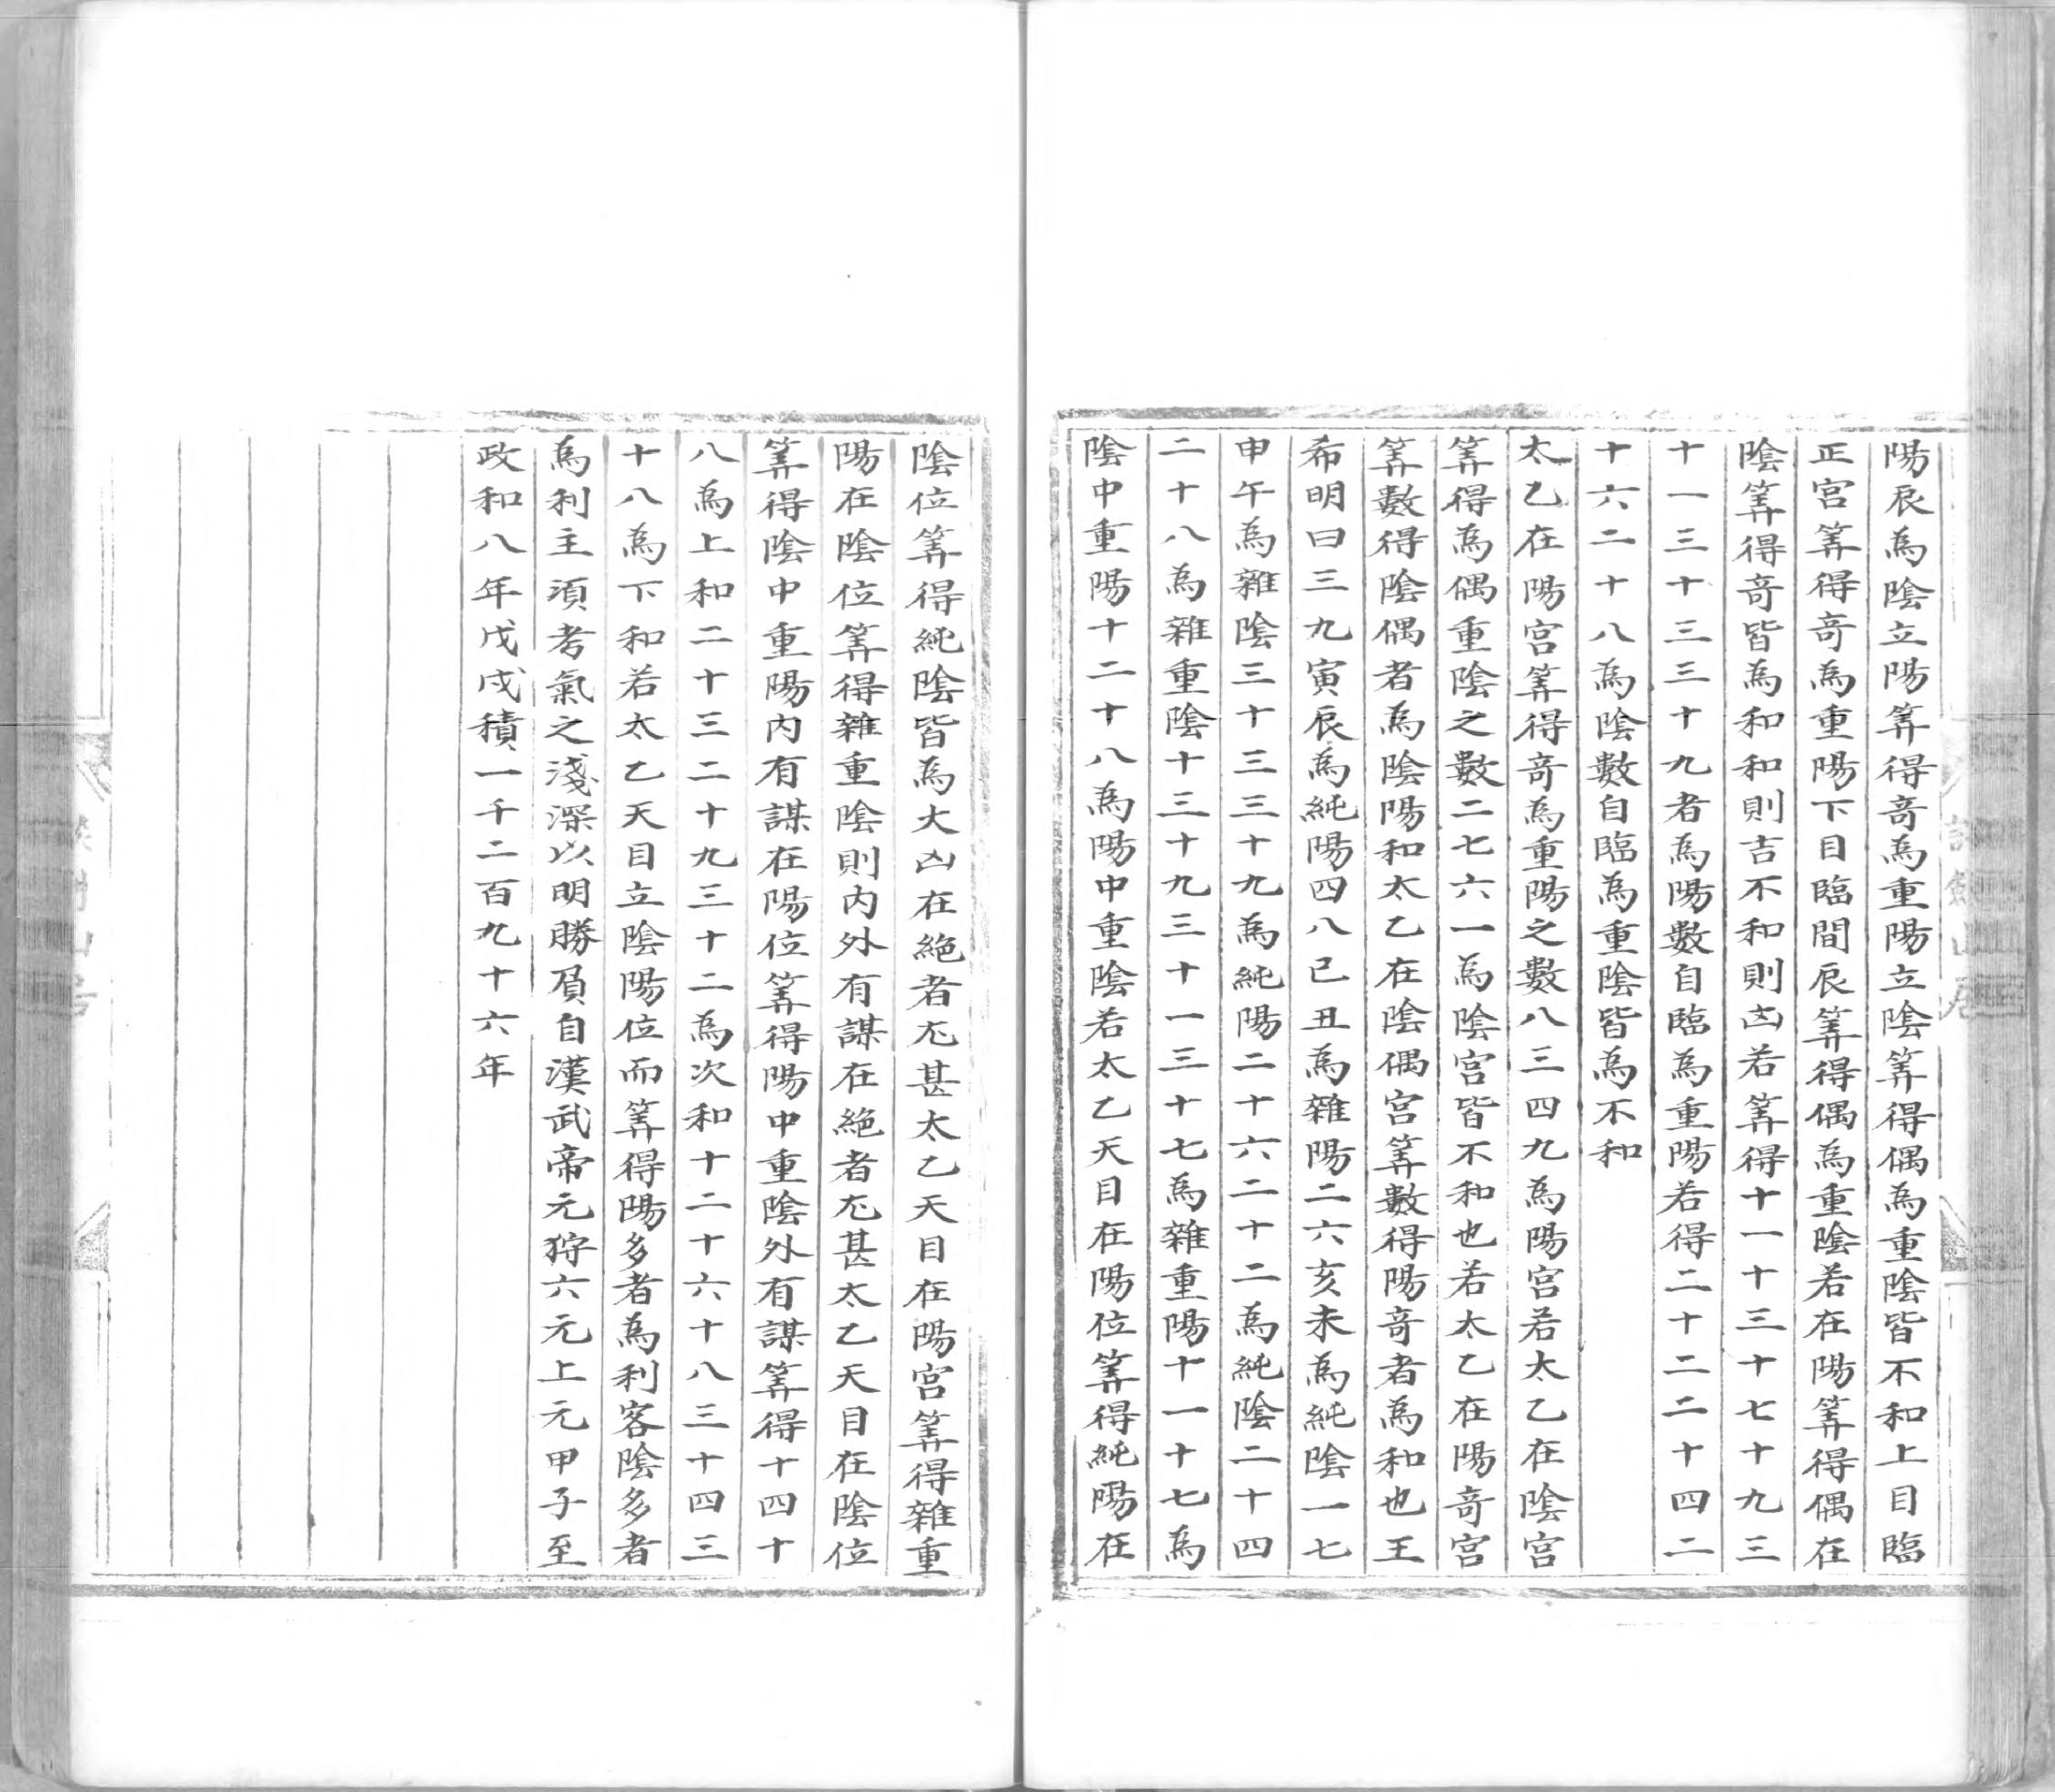 陽辰為陰立陽筭得竒為重陽立陰筭得偶為重陰皆不和上目臨
正宫筭得竒為重陽下目臨間辰筭得偶為重陰若在陽筭得偶在
陰筭得竒皆為和和則吉不和則凶若筭得十一十三十七十九三
十一三十三三十九者為陽數自臨為重陽若得二十二二十四二
十六二十八為陰數自臨為重陰皆為不和
太乙在陽宫筭得竒為重陽之數八三四九為陽宫若太乙在陰宫
筭得為偶重陰之數二七六一為陰宫皆不和也若太乙在陽竒宫
筭數得陰偶者為陰陽和太乙在陰偶宫筭數得陽竒者為和也王
希明曰三九寅辰為純陽四八已丑為雜陽二六亥未為純陰一七
申午為雜陰三十三三十九為純陽二十六二十二為純陰二十四
二十八為雜重陰十三十九三十一三十七為雜重陽十一十七為
陰中重陽十二十八為陽中重陰若太乙天目在陽位筭得純陽在
陰位筭得純陰皆為大凶在絶者尤甚太乙天目在陽宫筭得雜重
陽在陰位筭得雜重陰則内外有謀在絶者尤甚太乙天目在陰位
筭得陰中重陽内有謀在陽位筭得陽中重陰外有謀筭得十四十
八為上和二十三二十九三十二為次和十二十六十八三十四三
十八為下和若太乙天目立陰陽位而筭得陽多者為利客陰多者
為利主須考氣之淺深以明勝負自漢武帝元狩六元上元甲子至
政和八年戊戌積一千二百九十六年